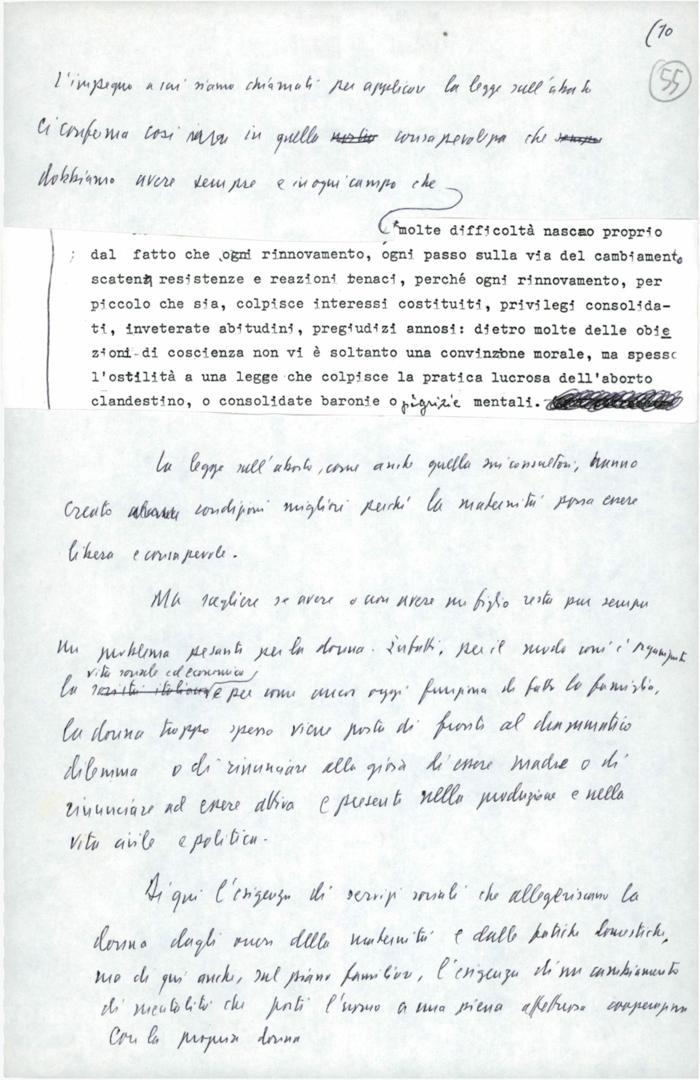 (10
55
L'impegno a cui siamo chiamati per applicare la legge sull'aborto
ci conferma così in quella nostra consapevolezza che sempre
dobbiamo avere sempre e in ogni campo che
molte difficoltà nascno proprio
dal fatto che ogni rinnovamento, ogni passo sulla via del cambiamento
scatena resistenze e reazioni tenaci, perché ogni rinnovamento, per
piccolo che sia, colpisce interessi costituiti, privilegi consolida-
ti, inveterate abitudini, pregiudizi annosi: dietro molte delle obie
zioni di coscienza non vi è soltanto una convinzione morale, ma spesso
l'ostilità a una legge che colpisce la pratica lucrosa dell'aborto
clandestino, o consolidate baronie o pigrizie mentali.
La legge sull'aborto, come anche quella sui consultori, hanno
creato condizioni migliori perché la maternità possa essere
libera e consapevole.
Ma scegliere se avere o non avere un figlio resta pur sempre
un problema pesante per la donna. Infatti, per il modo com'è organizzata
vita sociale ed economica
la società italiana e per come ancor oggi funziona di fatto la famiglia,
la donna troppo spesso viene posta di fronte al drammatico
dilemma o di rinunciare alla gioia di essere madre o di
rinunciare ad essere attiva e presente nella produzione e nella
vita civile e politica.
Di qui l'esigenza di servizi sociali che alleggeriscano la
donna dagli oneri della maternità e dalle fatiche domestiche,
ma di qui anche, sul piano familiare, l'esigenza di un cambiamento
di mentalità che porti l'uomo a una piena affettuosa cooperazione
con la propria donna